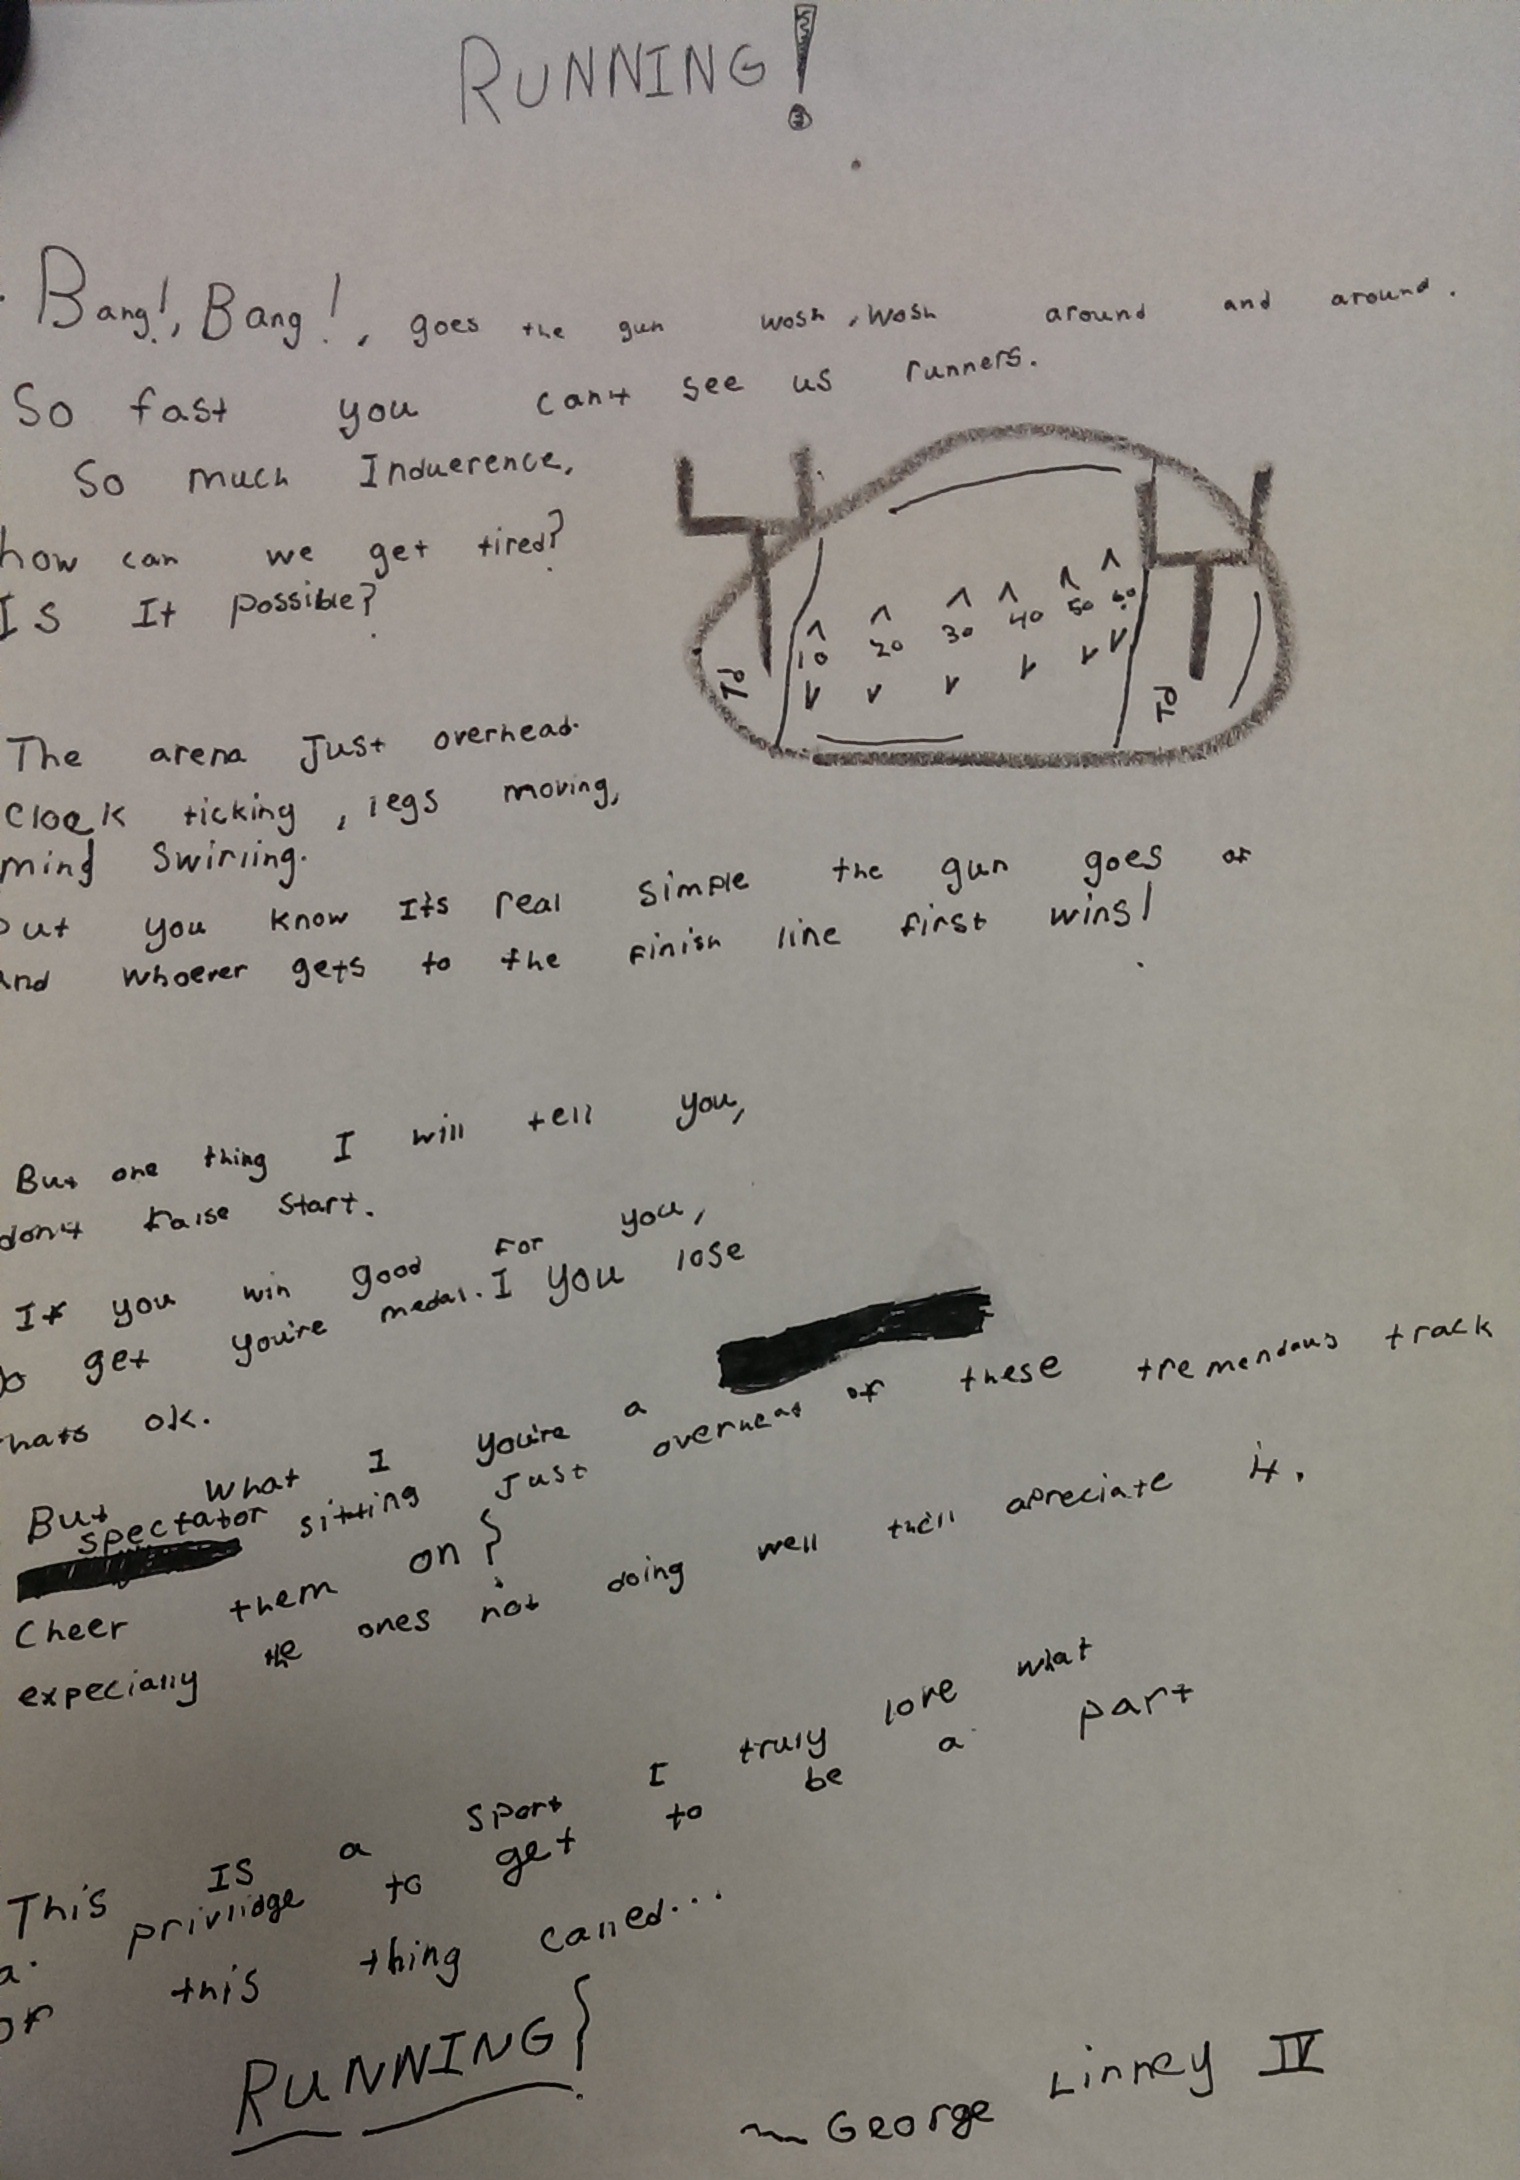 RUNNING!
Bang!, Bang!, goes the gun wosh, wosh around and around.
So fast you can't see us runners.
So much Induerence,
how can we get tired?
Is It possible?
10 20 30 40 50 60
Td Td
The arena Just overhead.
Clock ticking, legs moving,
mind swirling.
but you know It's real simple the gun goes of
and whoever gets to the finish line first wins!
But one thing I will tell you,
don't false start.
If you win good for you,
go get you're medal. I you lose
thats ok.
But what I you're a
spectator sitting Just overhead of these tremendaus track
Cheer them on!
expecially the ones not doing well they'll apreciate it.
This Is a sport I truly love what
a privlidge to get to be a part
of this thing called...
RUNNING!
~ George Linney IV